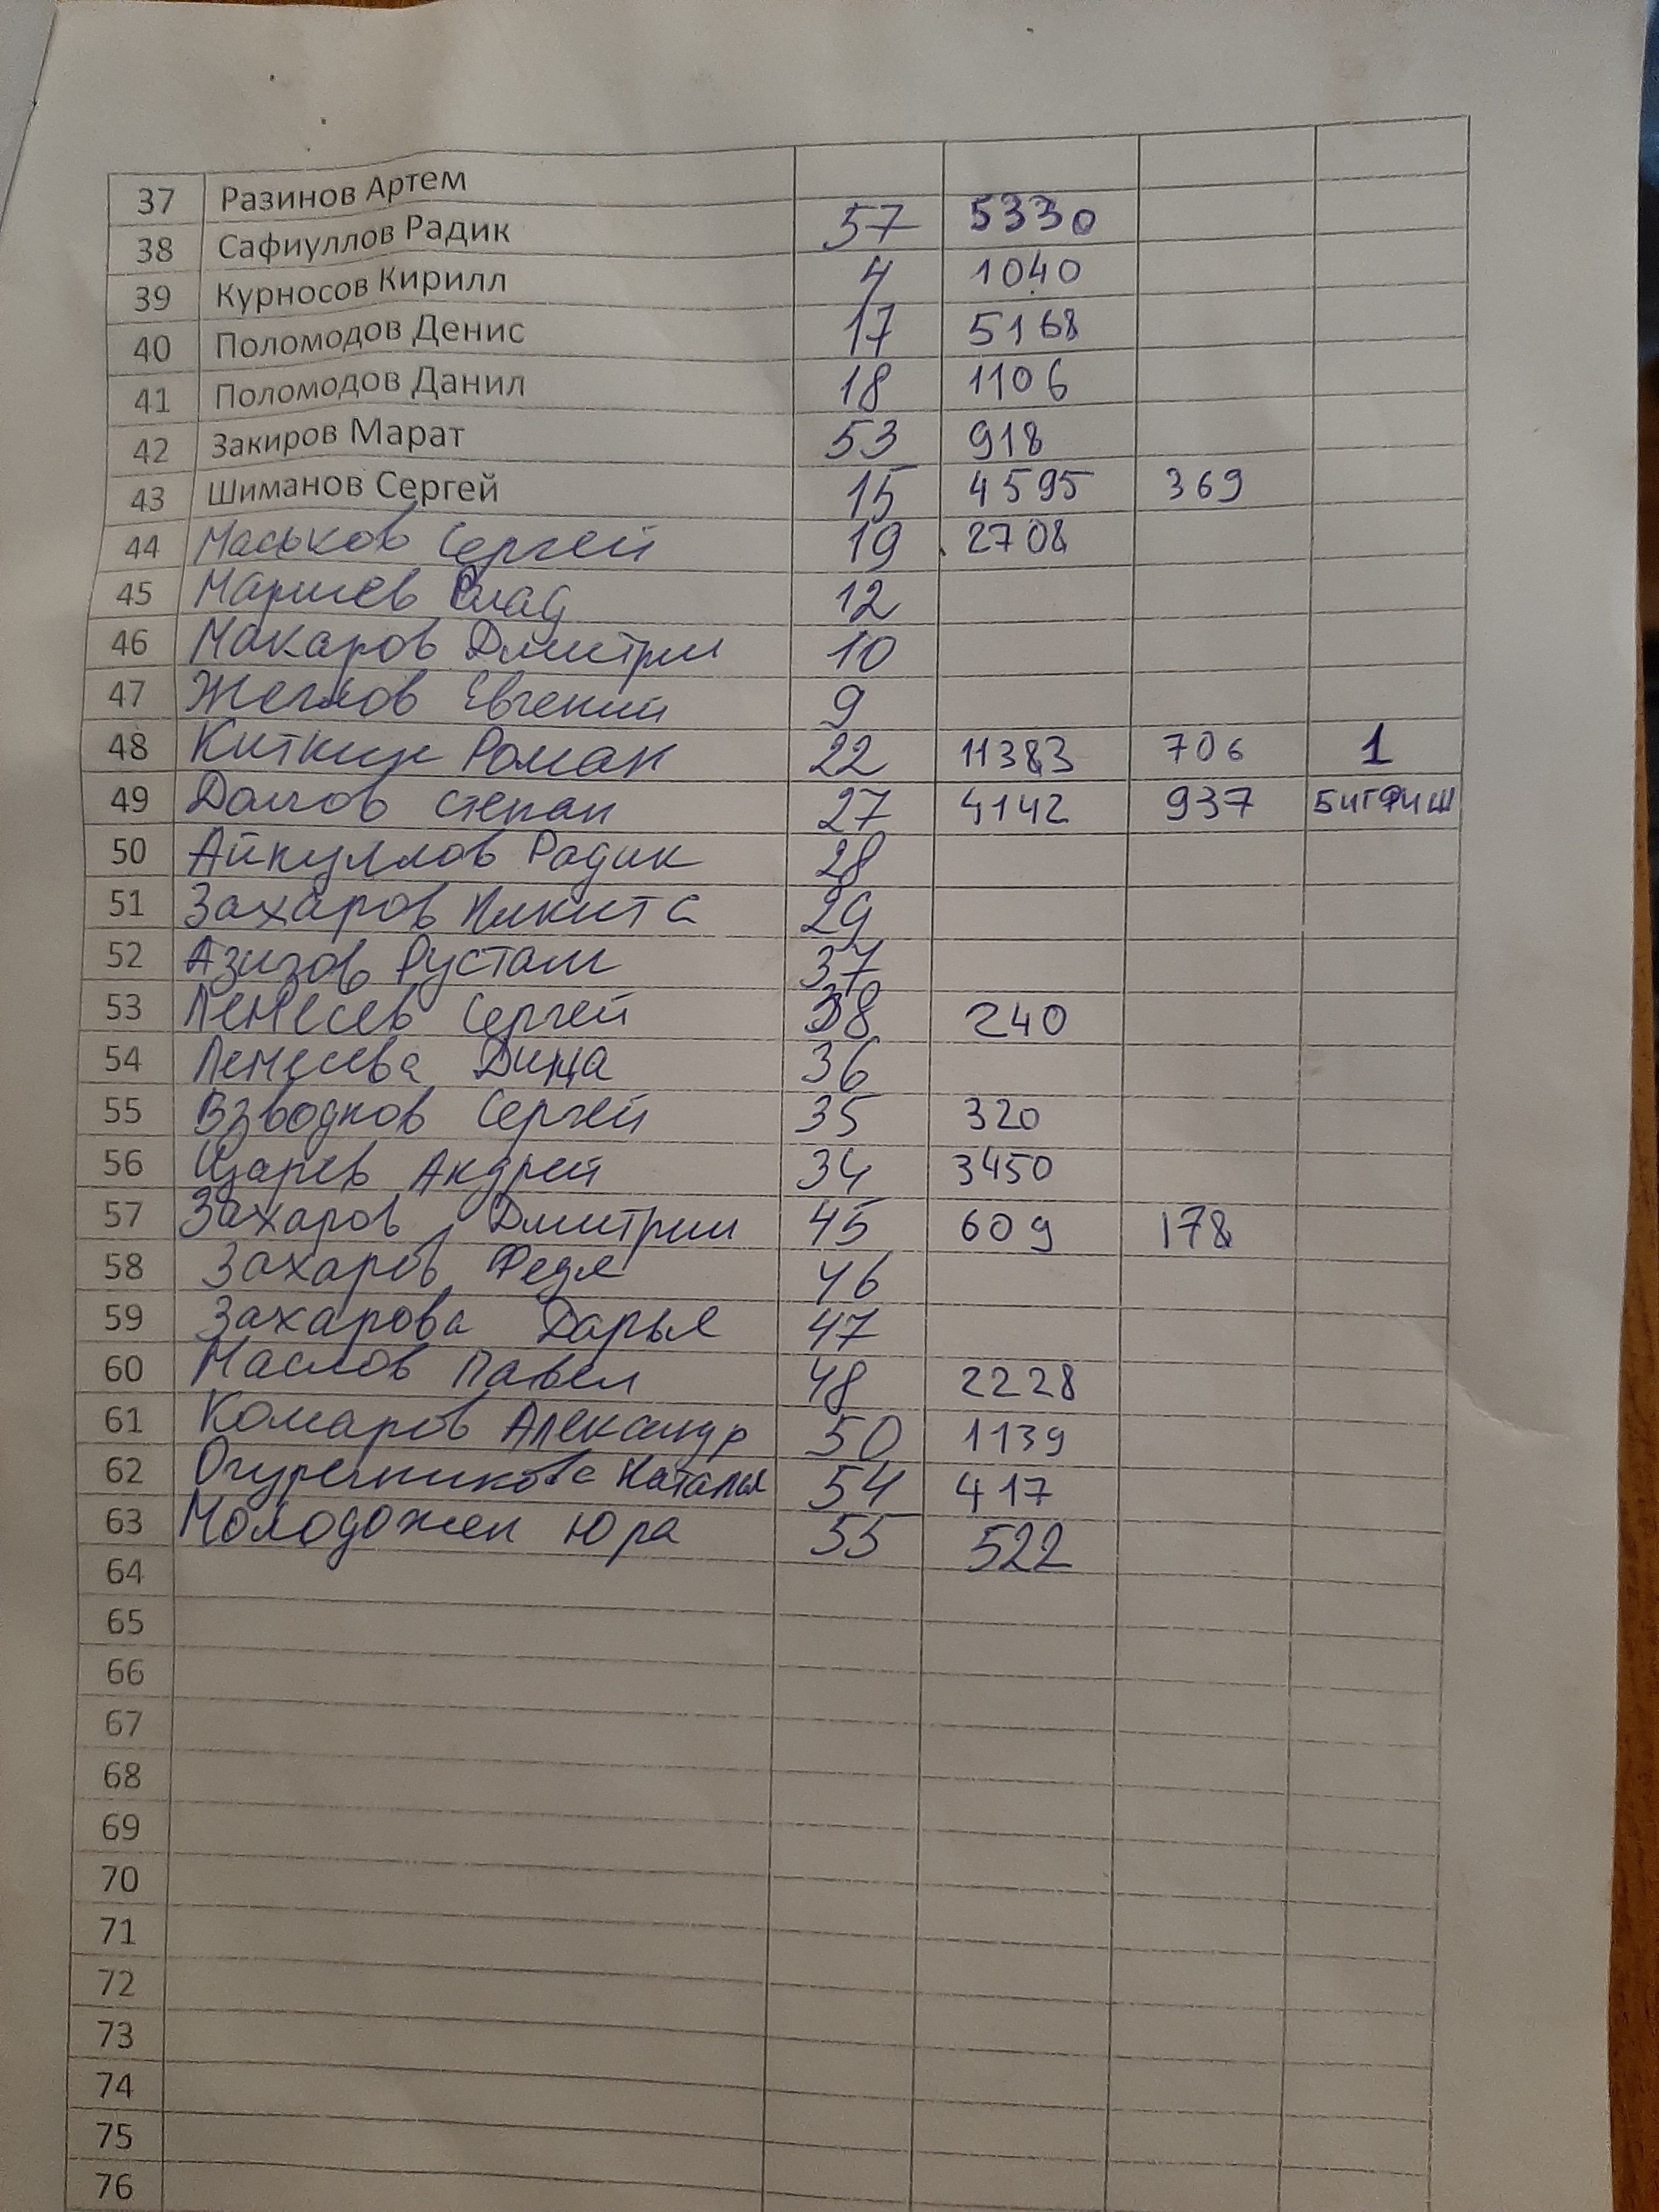 37 Разинов Артем
38 Сафиуллов Радик 57 5330
39 Курносов Кирилл 4 1040
40 Поломодов Денис 17 5168
41 Поломодов Данил 18 1106
42 Закиров Марат 53 918
43 Шиманов Сергей 15 4595 369
44 Маськов Сергей 19 2708
45 Маршев Влад 12
46 Макаров Дмитрий 10
47 Жеглов Евгений 9
48 Киткин Роман 22 11383 706 1
49 Долгов Степан 27 4142 937 БИГФИШ
50 Айкуллов Радик 28
51 Захаров Никита 29
52 Азизов Рустам 37
53 Лемесев Сергей 38 240
54 Лемесева Дина 36
55 Взводнов Сергей 35 320
56 Царев Андрей 34 3450
57 Захаров Дмитрий 45 609 178
58 Захаров Федя 46
59 Захарова Дарья 47
60 Маслов Павел 48 2228
61 Комаров Александр 50 1139
62 Огуречникова Наталья 54 417
63 Молодожен Юра 55 522
64
65
66
67
68
69
70
71
72
73
74
75
76